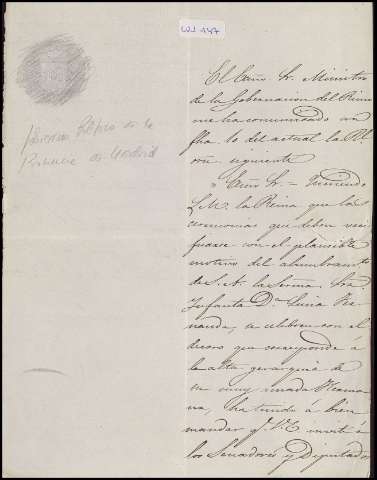 El Exmo Sr. Ministro
de la Gobernacion del Reino
me ha comunicado con
fha. 10 del actual la Rl.
orn siguiente
" Exmo Sr. = Queriendo
S.M. la Reina que las
ceremonias que deben veri
ficarse con el plausible
motivo del alumbramto
de S. A. la Serma. Sra
Infanta Da. Luisa Fer
nanda, se celebren con el
decoro que corresponde á
la alta gerarquia de
su muy amada Herma
na, ha tenido á bien
mandar q. V.E. invite á
los Senadores y Diputados
Provincia de Madrid